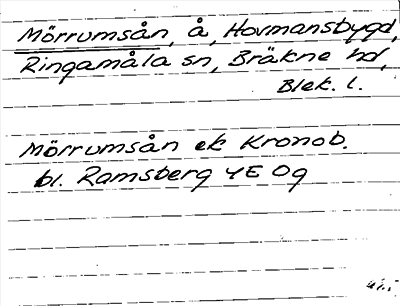 Mörrumsån, å, Hovmansbygd,
Ringamåla sn, Bräkne hd,
Blek. l.
Mörrumsån ek Kronob.
bl. Ramsberg 4E 0g